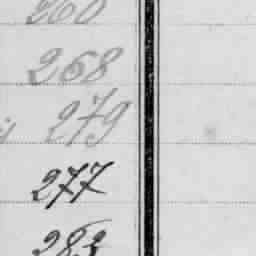 260
268
279
277
283